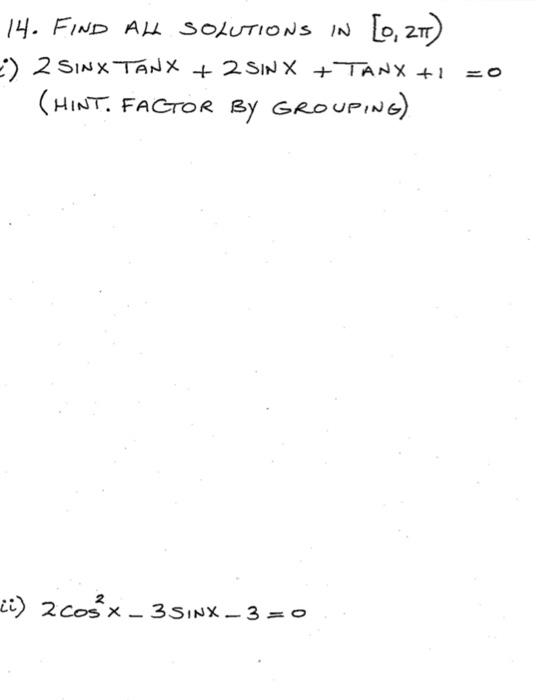 14. FIND ALL SOLUTIONS IN [0, 2π)
i) 2 SINX TANX + 2 SINX + TANX +1 = 0
(HINT. FACTOR BY GROUPING)
ii) 2 COS²X - 3 SINX - 3 = 0